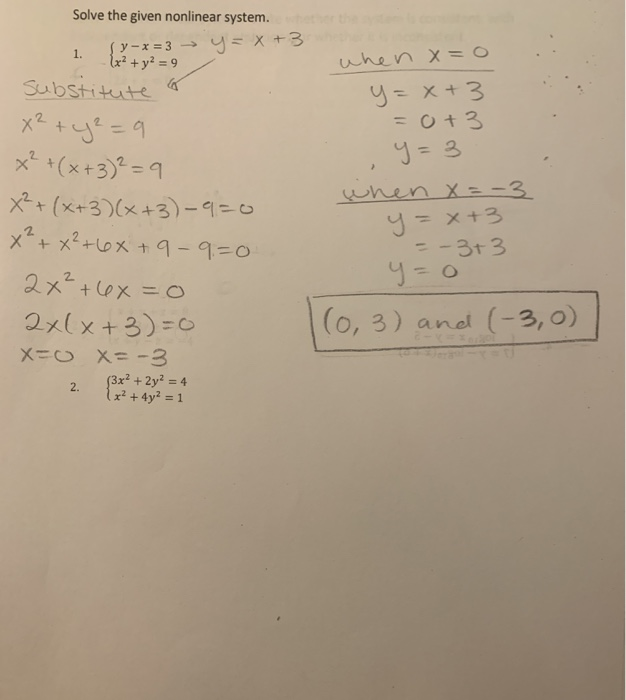 Solve the given nonlinear system.
1. { y − x = 3 → y = x + 3
x² + y² = 9
Substitute
x² + y² = 9
x² + (x+3)² = 9
x² + (x+3)(x+3) − 9 = 0
x² + x² + 6x + 9 − 9 = 0
2x² + 6x = 0
2x(x + 3) = 0
x = 0 x = −3
when x = 0
y = x + 3
= 0 + 3
y = 3
when x = −3
y = x + 3
= −3 + 3
y = 0
(0, 3) and (−3, 0)
2. { 3x² + 2y² = 4
x² + 4y² = 1